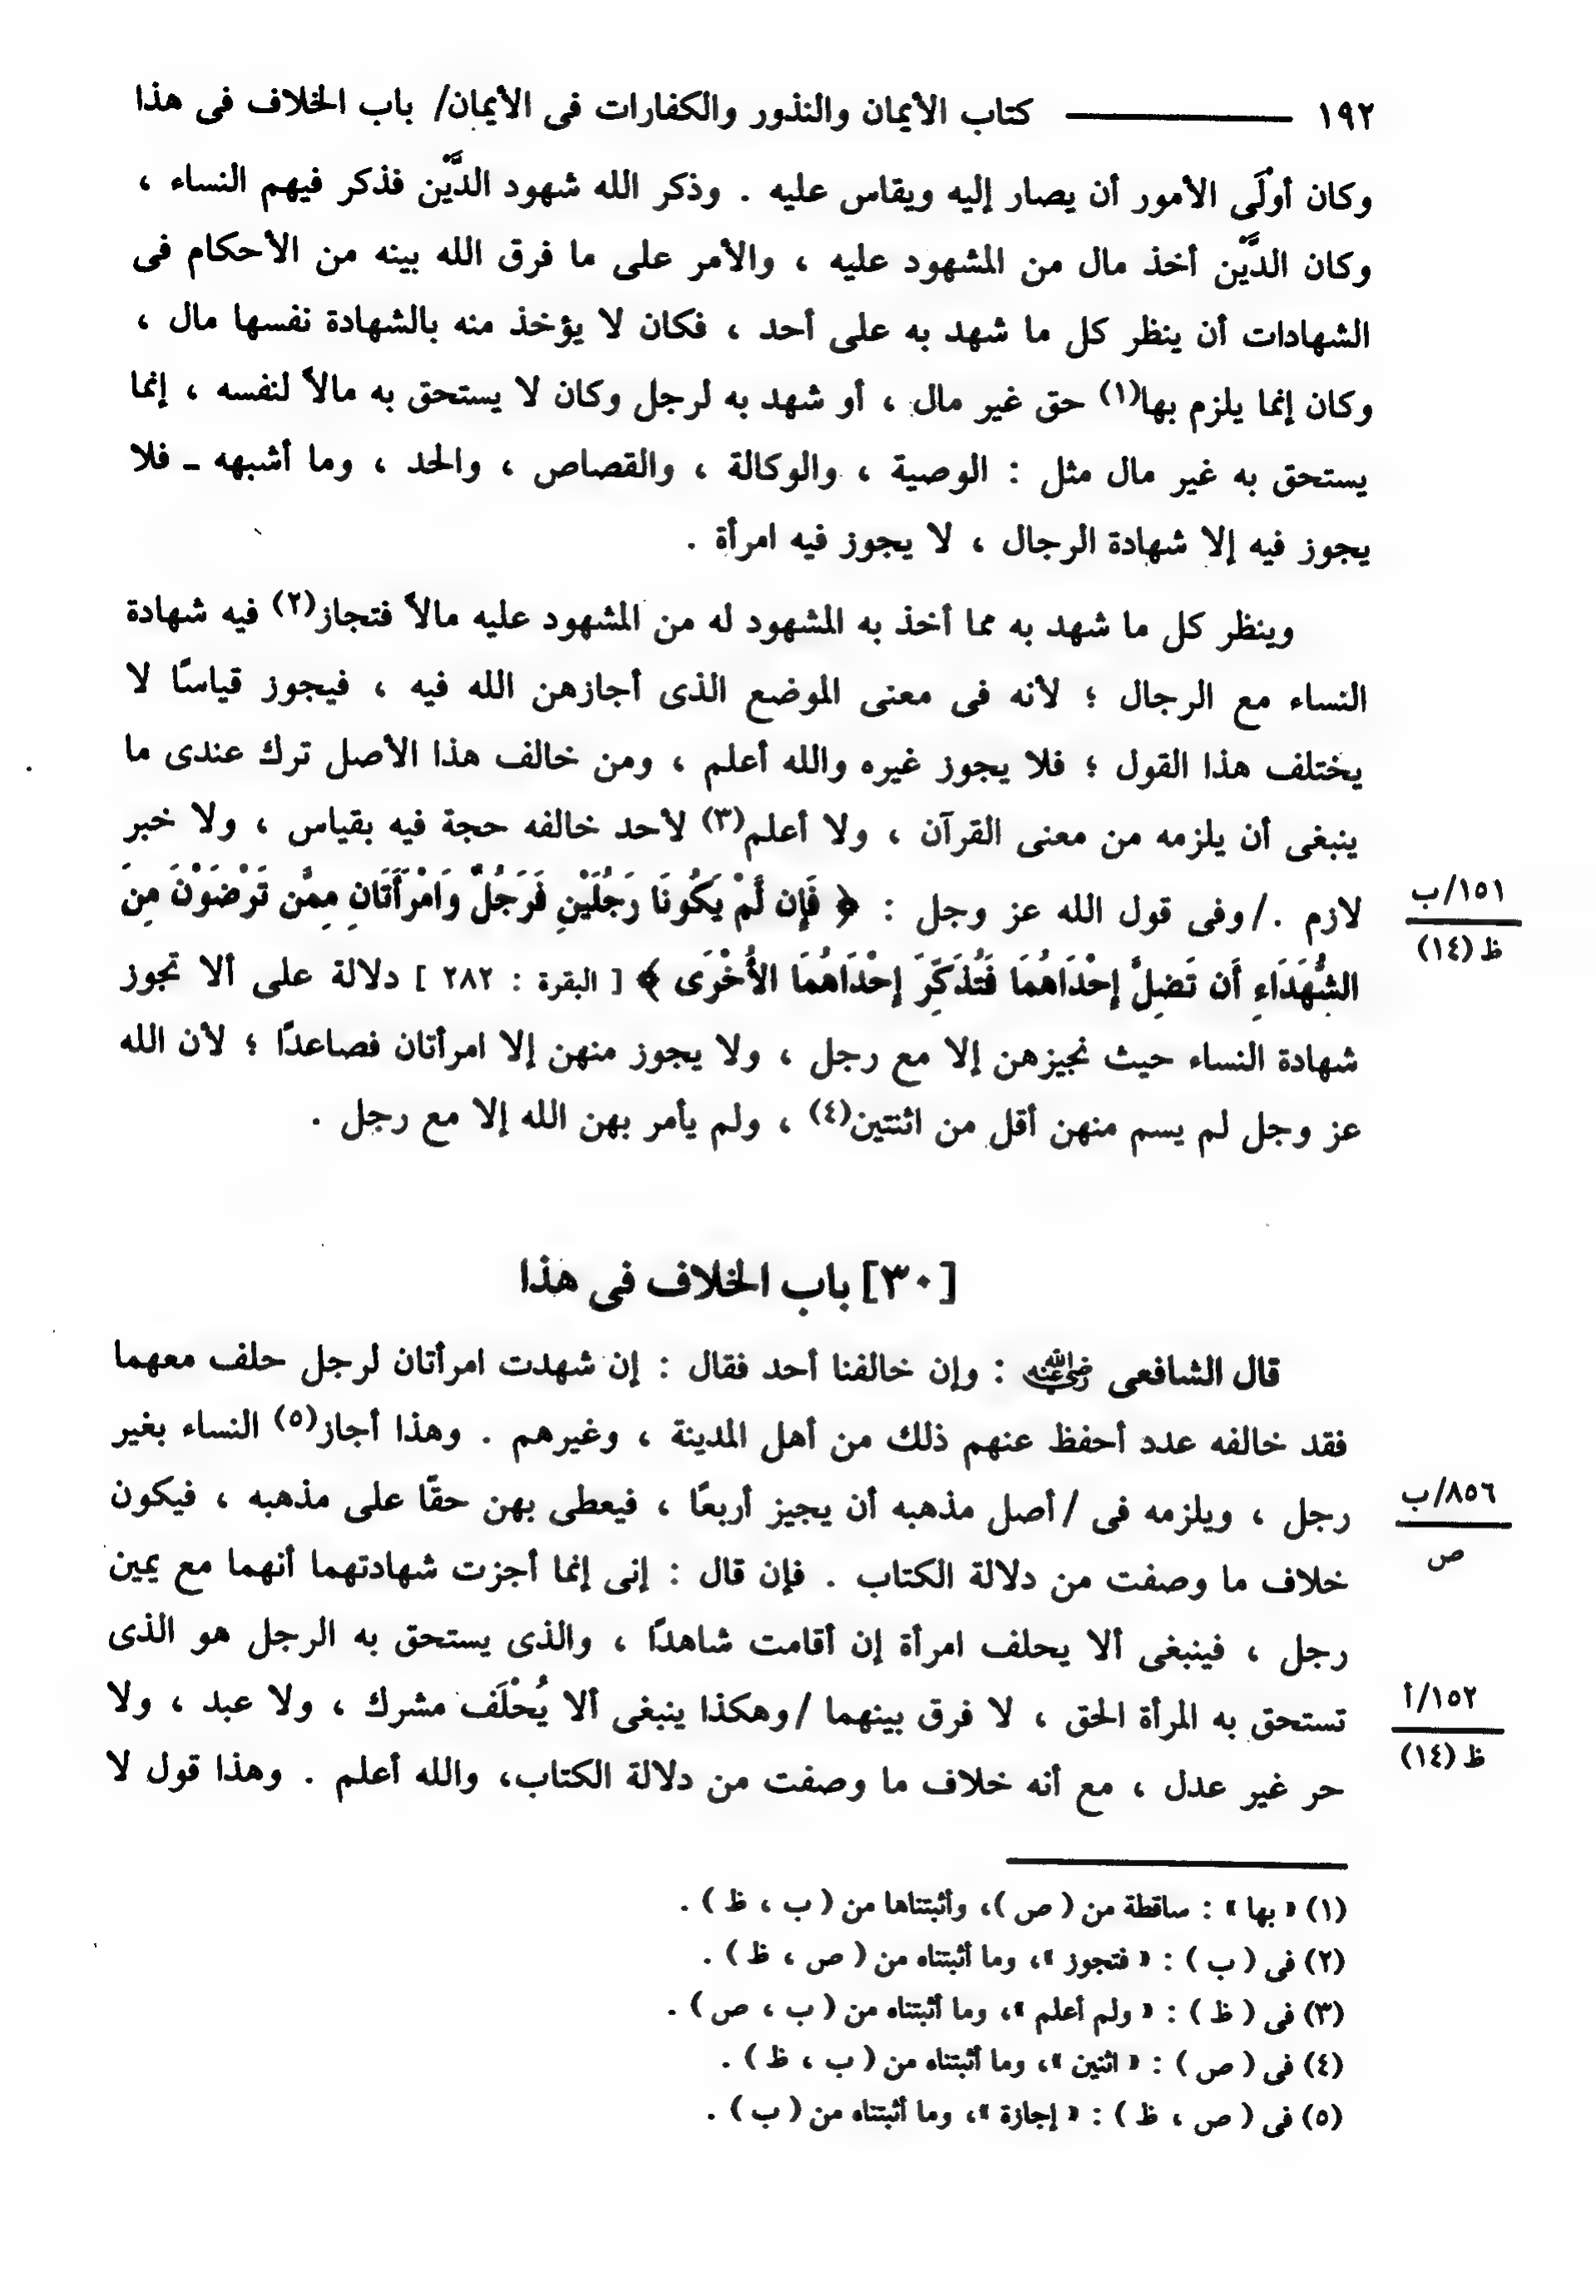 ١٩٢ ــــــــ كتاب الأيمان والنذور والكفارات فى الأيمان/ باب الخلاف فى هذا
وكان أولَى الأمور أن يصار إليه ويقاس عليه . وذكر الله شهود الدَّيْن فذكر فيهم النساء ،
وكان الدَّيْن أخذ مال من المشهود عليه ، والأمر على ما فرق الله بينه من الأحكام فى
الشهادات أن ينظر كل ما شهد به على أحد ، فكان لا يؤخذ منه بالشهادة نفسها مال ،
وكان إنما يلزم بها(١) حق غير مال ، أو شهد به لرجل وكان لا يستحق به مالاً لنفسه ، إنما
يستحق به غير مال مثل : الوصية ، والوكالة ، والقصاص ، والحد ، وما أشبهه ـ فلا
يجوز فيه إلا شهادة الرجال ، لا يجوز فيه امرأة .
وينظر كل ما شهد به مما أخذ به المشهود له من المشهود عليه مالاً فتجاز(٢) فيه شهادة
النساء مع الرجال ؛ لأنه فى معنى الموضع الذى أجازهن الله فيه ، فيجوز قياسًا لا
يختلف هذا القول ؛ فلا يجوز غيره والله أعلم ، ومن خالف هذا الأصل ترك عندى ما
ينبغى أن يلزمه من معنى القرآن ، ولا أعلم(٣) لأحد خالفه حجة فيه بقياس ، ولا خبر
١٥١/ب
ظ (١٤)
لازم . /وفى قول الله عز وجل : ﴿ فَإِن لَّمْ يَكُونَا رَجُلَيْنِ فَرَجُلٌ وَامْرَأَتَانِ مِمَّن تَرْضَوْنَ مِنَ
الشُّهَدَاءِ أَن تَضِلَّ إِحْدَاهُمَا فَتُذَكِّرَ إِحْدَاهُمَا الأُخْرَى ﴾ [ البقرة : ٢٨٢ ] دلالة على ألا تجوز
شهادة النساء حيث نجيزهن إلا مع رجل ، ولا يجوز منهن إلا امرأتان فصاعدًا ؛ لأن الله
عز وجل لم يسم منهن أقل من اثنتين(٤) ، ولم يأمر بهن الله إلا مع رجل .
[٣٠] باب الخلاف فى هذا
قال الشافعى رضي الله عنه : وإن خالفنا أحد فقال : إن شهدت امرأتان لرجل حلف معهما
فقد خالفه عدد أحفظ عنهم ذلك من أهل المدينة ، وغيرهم . وهذا أجاز(٥) النساء بغير
٨٥٦/ب
ص
رجل ، ويلزمه فى /أصل مذهبه أن يجيز أربعًا ، فيعطى بهن حقًا على مذهبه ، فيكون
خلاف ما وصفت من دلالة الكتاب . فإن قال : إنى إنما أجزت شهادتهما أنهما مع يمين
رجل ، فينبغى ألا يحلف امرأة إن أقامت شاهدًا ، والذى يستحق به الرجل هو الذى
١٥٢/أ
ظ (١٤)
تستحق به المرأة الحق ، لا فرق بينهما /وهكذا ينبغى ألا يُحْلَف مشرك ، ولا عبد ، ولا
حر غير عدل ، مع أنه خلاف ما وصفت من دلالة الكتاب، والله أعلم . وهذا قول لا
(١) « بها » : ساقطة من ( ص )، وأثبتناها من ( ب ، ظ ) .
(٢) فى ( ب ) : « فتجوز »، وما أثبتناه من ( ص ، ظ ) .
(٣) فى ( ظ ) : « ولم أعلم »، وما أثبتناه من ( ب ، ص ) .
(٤) فى ( ص ) : « اثنين »، وما أثبتناه من ( ب ، ظ ) .
(٥) فى ( ص ، ظ ) : « إجازة »، وما أثبتناه من ( ب ) .